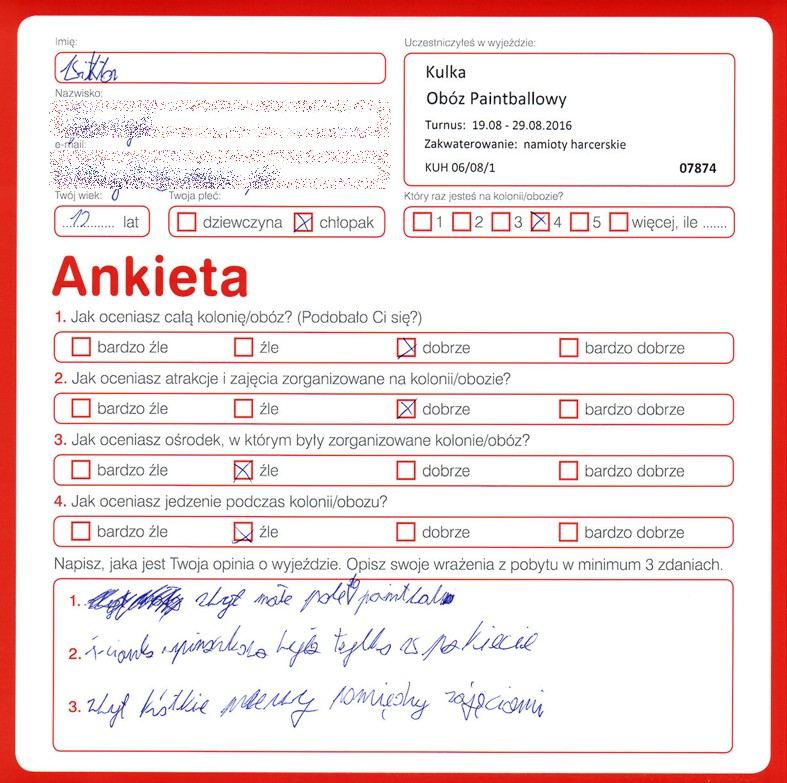 Imię:
Wiktor
Nazwisko:
e-mail:
Uczestniczyłeś w wyjeździe:
Kulka
Obóz Paintballowy
Turnus: 19.08 - 29.08.2016
Zakwaterowanie: namioty harcerskie
KUH 06/08/1 07874
Twój wiek:
...12........ lat
Twoja płeć:
dziewczyna chłopak
Który raz jesteś na kolonii/obozie?
1 2 3 4 5 więcej, ile .......
Ankieta
1. Jak oceniasz całą kolonię/obóz? (Podobało Ci się?)
bardzo źle źle dobrze bardzo dobrze
2. Jak oceniasz atrakcje i zajęcia zorganizowane na kolonii/obozie?
bardzo źle źle dobrze bardzo dobrze
3. Jak oceniasz ośrodek, w którym były zorganizowane kolonie/obóz?
bardzo źle źle dobrze bardzo dobrze
4. Jak oceniasz jedzenie podczas kolonii/obozu?
bardzo źle źle dobrze bardzo dobrze
Napisz, jaka jest Twoja opinia o wyjeździe. Opisz swoje wrażenia z pobytu w minimum 3 zdaniach.
1. zbyt małe pole do paintbala
2. ścianka wspinaczkowa była tylko w pakiecie
3. zbyt krótkie przerwy pomiędzy zajęciami